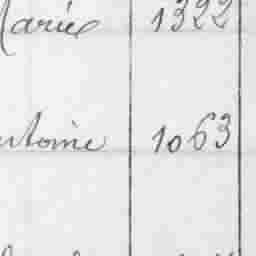 Marie 1322
Antoine 1063